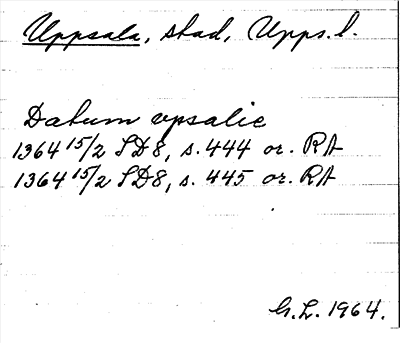 Uppsala, stad, Upps.l.
Datum vpsalie
1364 15/2 SD8, s. 444 or. RA
1364 15/2 SD8, s. 445 or. RA
G.L. 1964.